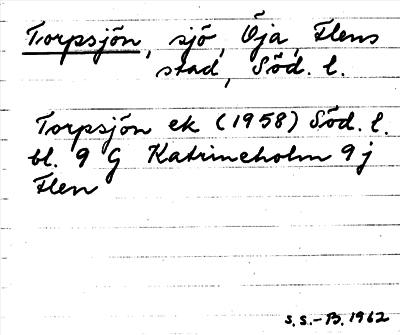 Torpsjön, sjö, Öja, Flens
stad, Söd. l.
Torpsjön ek (1958) Söd. l.
bl. 9 G Katrineholm 9 j
Flen
S. S.-B. 1962